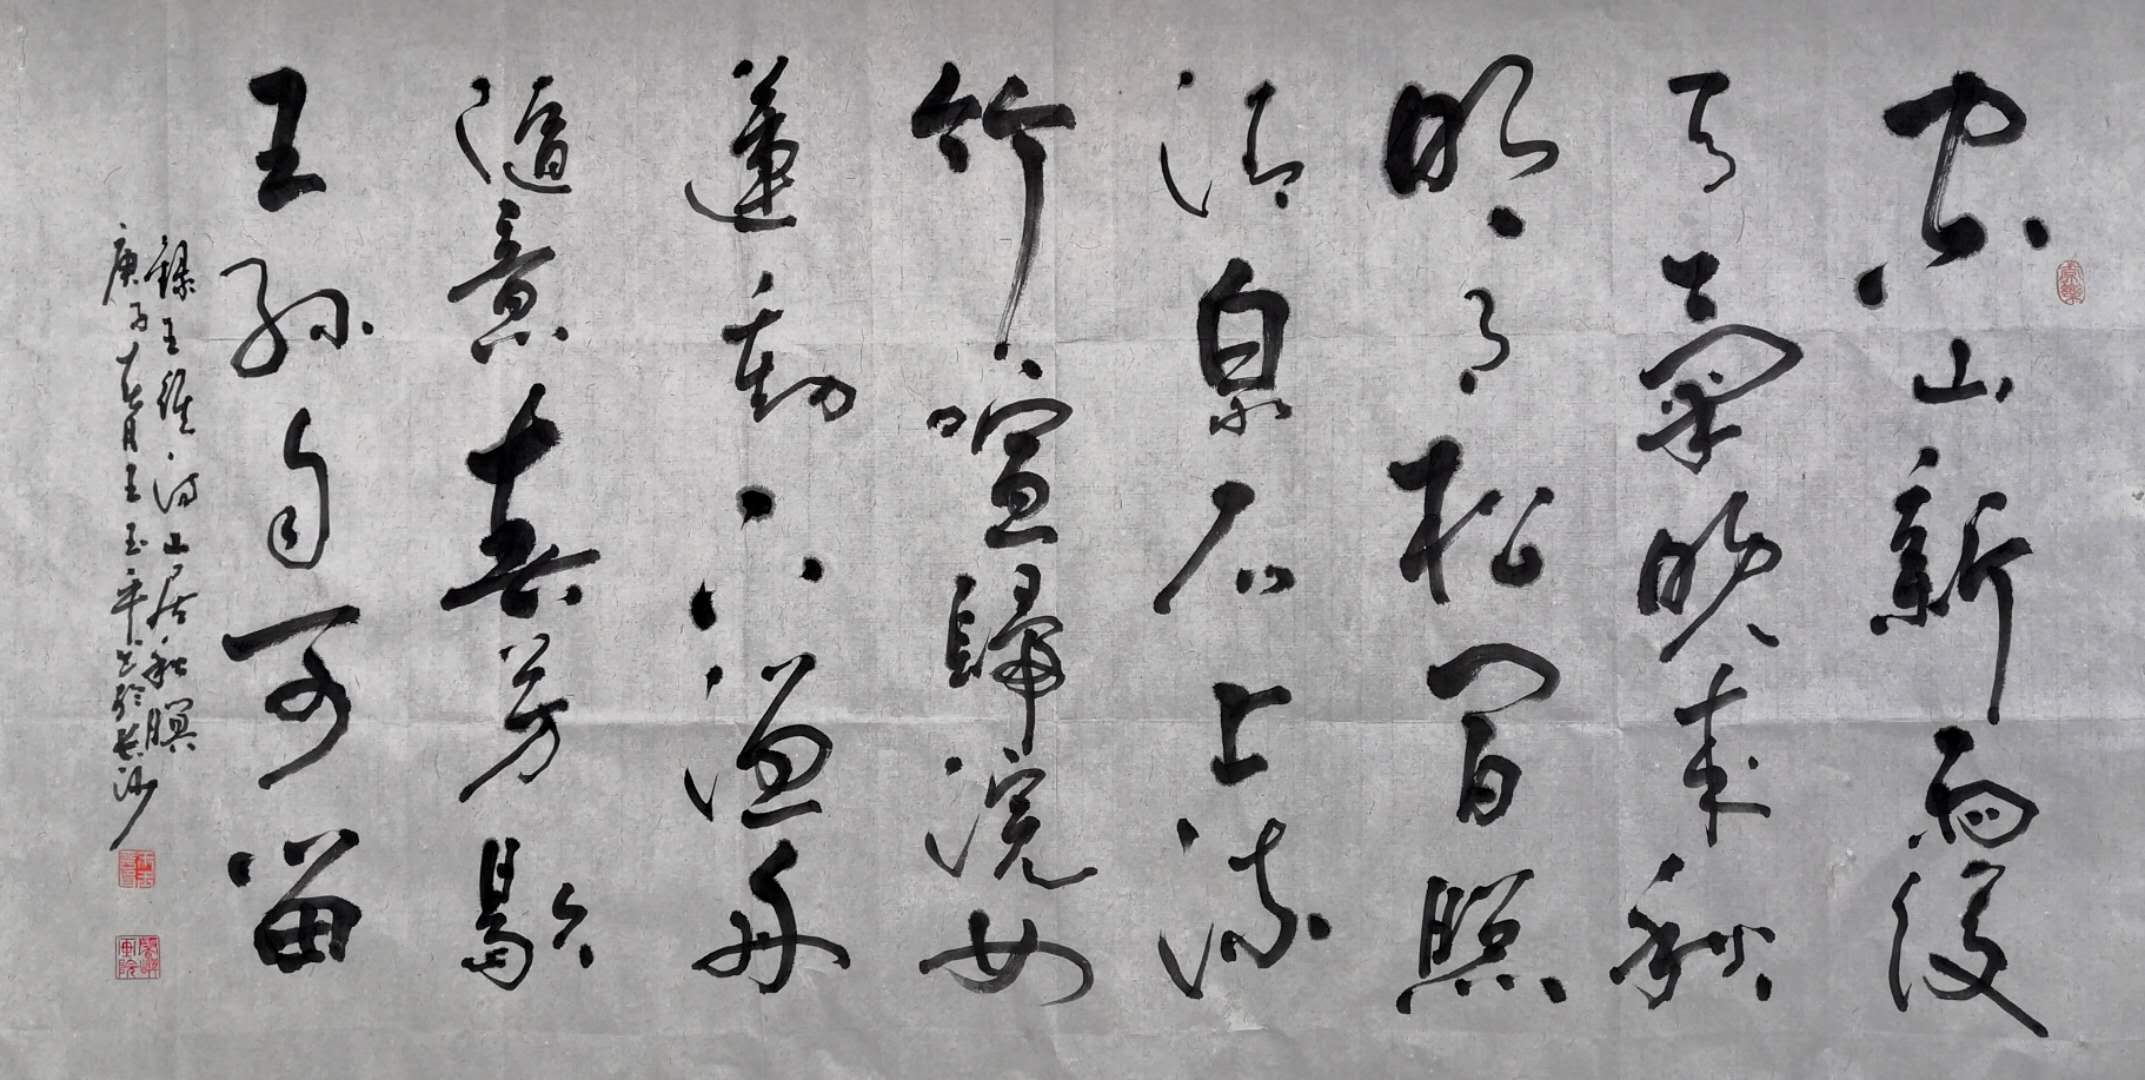 空山新雨後
天氣晚來秋
明月松間照
清泉石上流
竹喧歸浣女
蓮動下漁舟
隨意春芳歇
王孫自可留
錄王維詩山居秋暝
庚子月王玉平書於長沙